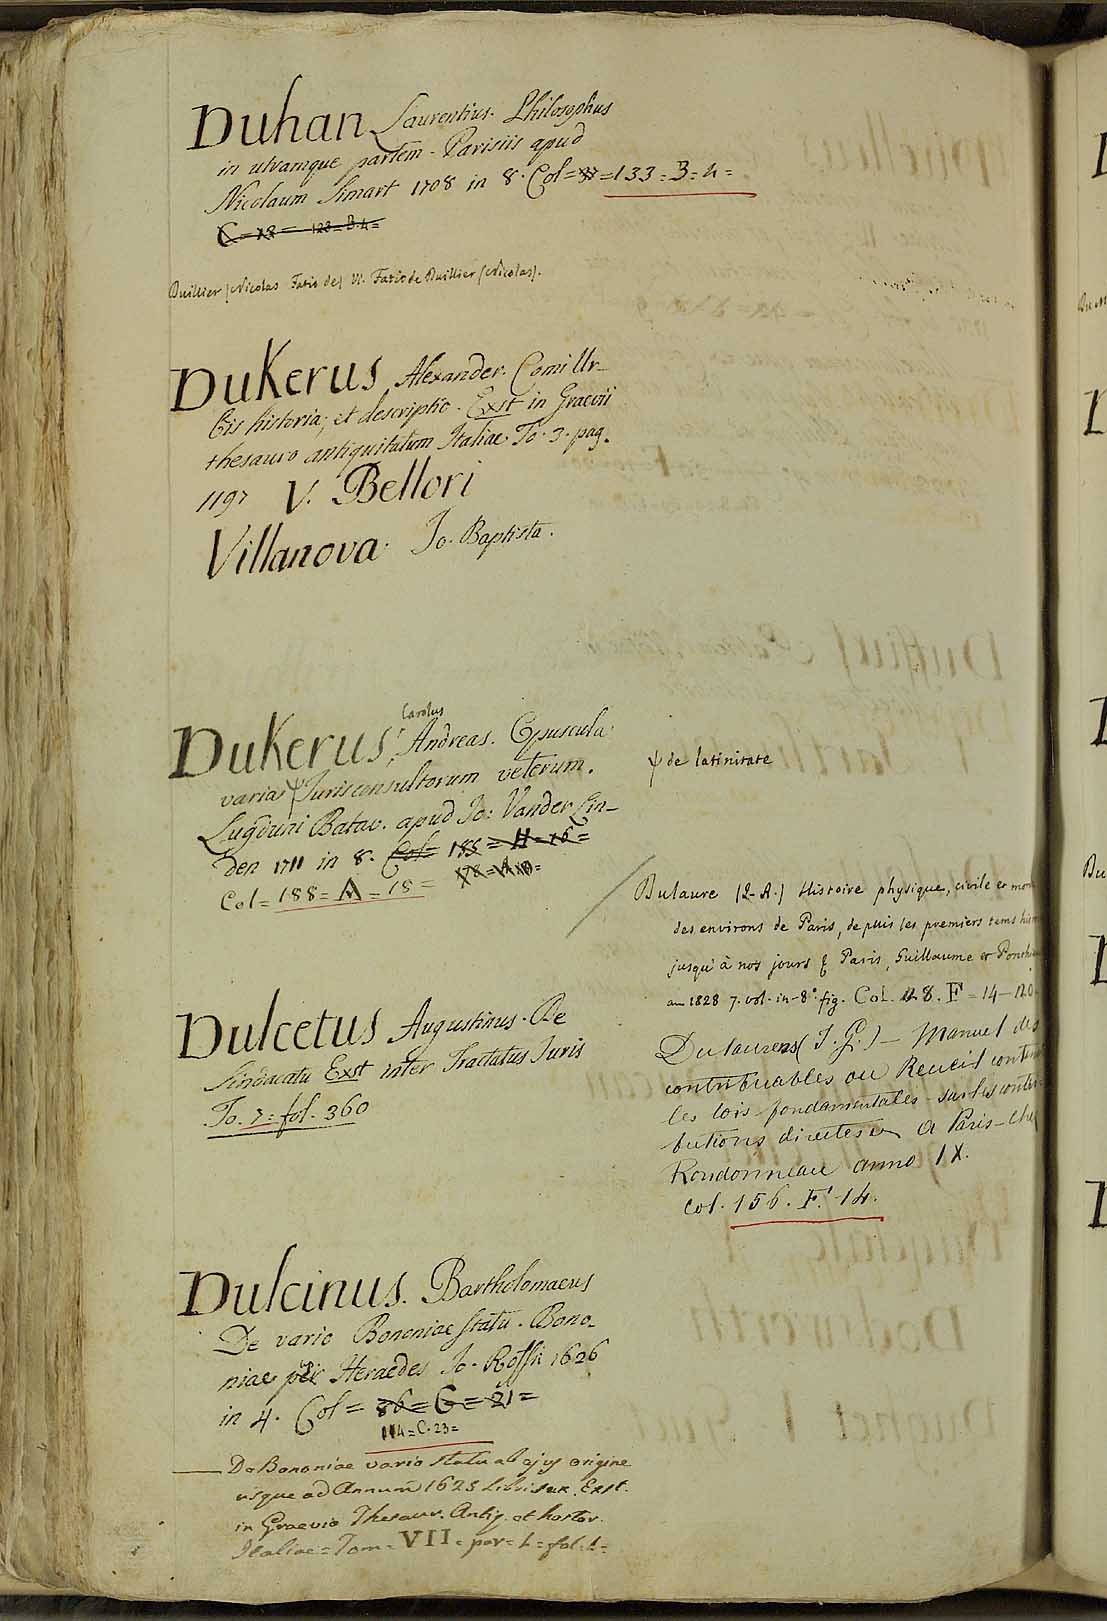 Duhan Laurentius. Philosophus
in utramque partem - Parisiis apud
Nicolaum Simart 1708 in 8. Col = 133 = B = 4 =
Duillier (Nicolas Fatio de) V. Fatio de Duillier (Nicolas).
Dukerus Alexander. Comi Ur-
bis historia, et descriptio. Exst in Graevii
thesauro antiquitatum Italiae To. 3. pag.
1197 V. Bellori
Villanova Jo. Baptista.
Carolus
Dukerus, Andreas. Opuscula
varia Ψ Jurisconsultorum veterum.
Ψ de latinitate
Lugduni Batav. apud Jo: Vander Lin-
den 1711 in 8. Col= 188 = H = 16 =
178 = A 18 =
Col = 188 = A = 18 =
Dulaure (J-A.) Histoire physique, civile et mor
des environs de Paris, depuis les premiers tems
jusqu'à nos jours & Paris, Guillaume et
an 1828 7. vol. in-8° fig. Col. 8. F = 14-
Dulaurens (J. G.) — Manuel des
contribuables ou Recueil
les lois fondamentales - sur les contri
butions directes a Paris - che
Rondonneau anno IX.
Col. 156. F. 14.
Dulcetus Augustinus. De
Sindacatu Exst inter Tractatus Juris
To. 7 = fol. 360
Dulcinus. Bartholomaeus
De vario Bononiae statu. Bono-
niae per Heraedes Jo. Rossii 1626
in 4. Col = 86 = G = 21 =
114 = C. 23 =
De Bononiae vario statu ab ejus origine
usque ad Annum 1625 Libri sex. Exst.
in Graevio Thesaur. Antiq. et histor.
Italiae = Tom. VII. par = 1 = fol. 1 =